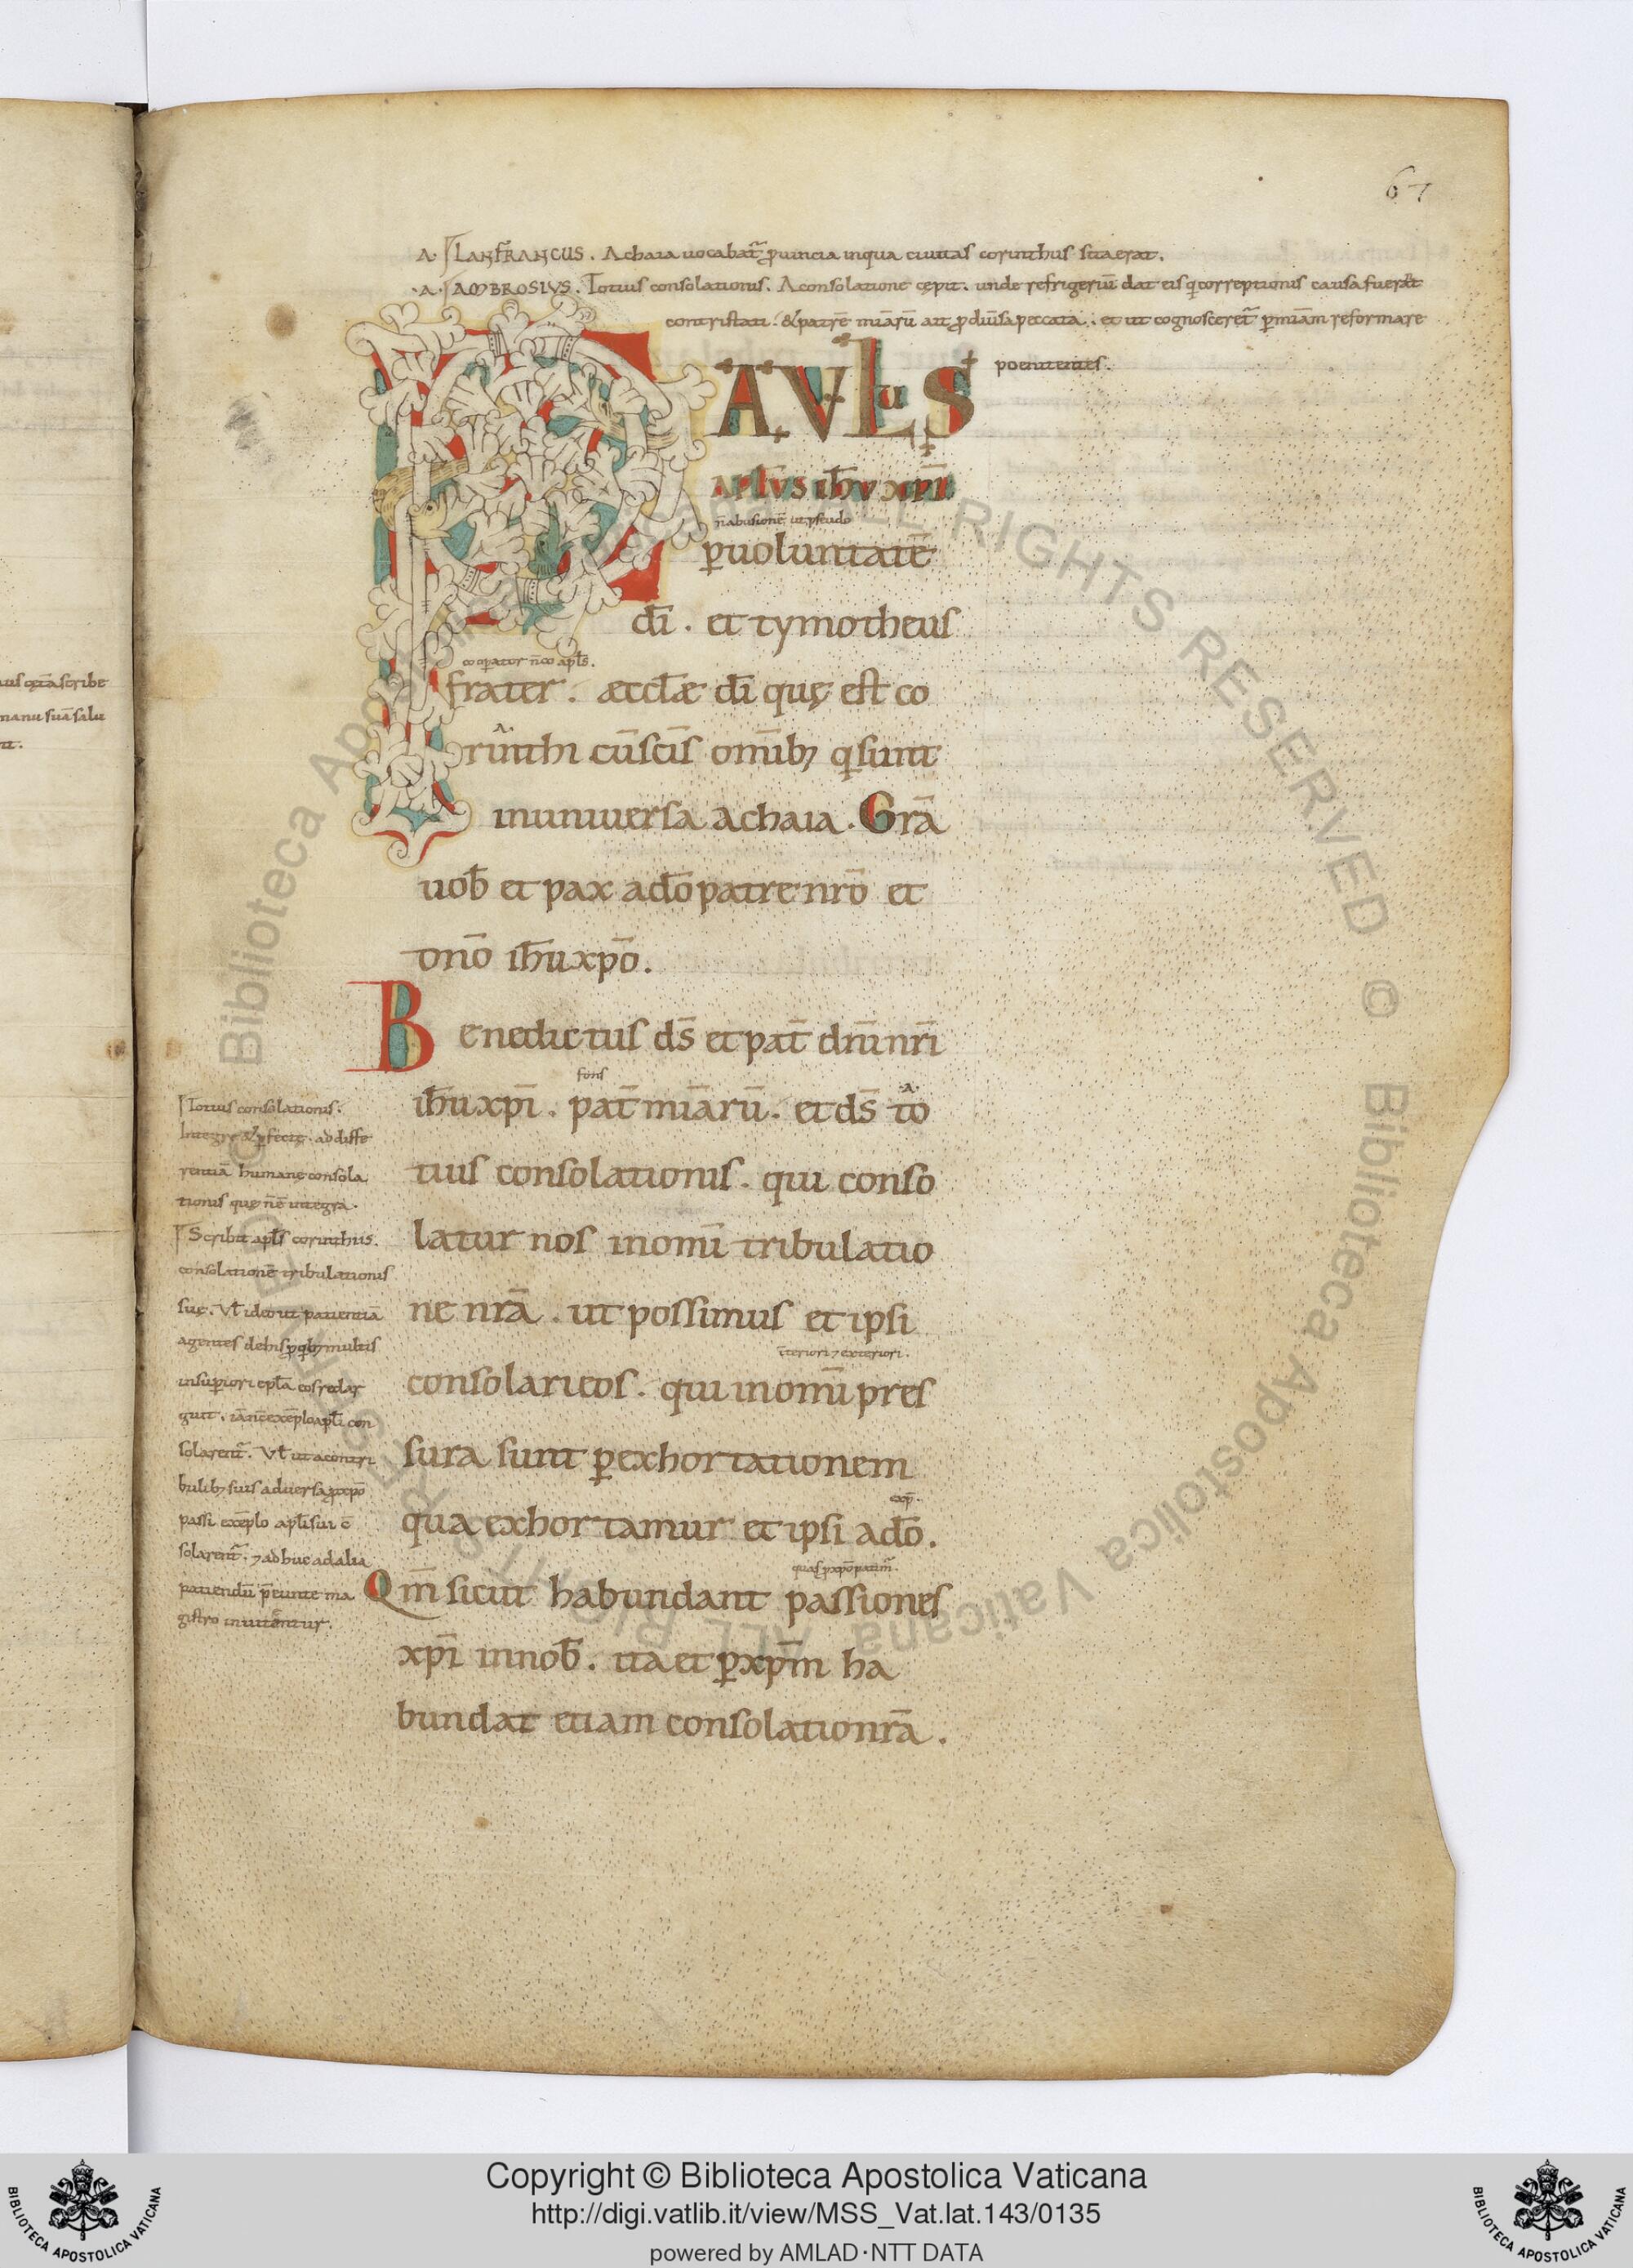 67
.A. LANFRANCUS. Achaia uocabat̄ ꝓuincia inqua ciuitas corinthus sita erat.
.A. AMBROSIVS. Totius consolationis. A consolatione cępit. unde refrigeriū dat eis q correptionis causa fuerāt
contristati. & patrē miarū ait ꝓ diūsa peccata. et ut cognosceret̄ ꝑ miam reformare
poenitentes.
PAVLuS
APLVS IHV XPI
n̄ abusionē ut pseudo
ꝑ uoluntatē
dī. et tymotheus
cooꝑator n̄ coapls.
frater. æcclæ dī quę est co
rinthi cū scīs omib; q sunt
in uniuersa achaia. Grā
uob̄ et pax a dō patre nrō et
dnō ihu xpō.
Benedictus ds̄ et pat̄ dnī nrī
fons
ihu xpī. pat̄ miarū. et ds̄ to
.A.
tius consolationis. qui conso
latur nos in omī tribulatio
ne nrā. ut possimus et ipsi
īteriori ⁊ exteriori.
consolari eos. qui in omī pres
sura sunt ꝑ exhortationem
exp̄.
qua exhortamur et ipsi a dō.
quas ꝓ xpo patim̄.
Qm̄ sicut habundant passiones
xpī in nob̄. ita et ꝑ xpm̄ ha
bundat etiam consolatio nrā.
Totius consolationis.
Integrę & ꝑfectę. ad diffe
rentiā humanę consola
tionis quę n̄ ē integra.
Scribit apls corinthiis.
consolationē tribulationis
suę. Vł ideo ut patientiā
agentes de his ꝓ quib; multis
in suꝑiori epła eos redar
guit. iā nc̄ exēplo apłi con
solarent̄. Vł ut a contri
bulib; suis aduersa ꝓ xpo
passi exēplo apłi sui c̄
solarent̄. ⁊ adhuc ad alia
patiendū p̄eunte ma
gistro inuitentur.
us cęta scribe
manu suā salu
it.
Copyright © Biblioteca Apostolica Vaticana
http://digi.vatlib.it/view/MSS_Vat.lat.143/0135
powered by AMLAD·NTT DATA
BIBLIOTECA APOSTOLICA VATICANA
BIBLIOTECA APOSTOLICA VATICANA
Biblioteca Apostolica Vaticana ALL RIGHTS RESERVED ©
Biblioteca Apostolica Vaticana ALL RIGHTS RESERVED ©